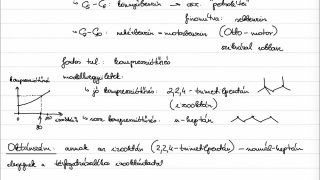 C₅-C₆: könnyűbenzin → 
finomítva: 
C₆-C₁₀: nehézbenzin = motorbenzin (Otto-motor)
szikrával robban
fontos tul.: kompressziótűrés
kompressziótűrés
modellvegyületek:
jó kompressziótűrés: 2,2,4-trimetilpentán
(izooktán)
rossz kompressziótűrés: n-heptán
Oktánszám: annak az izooktán (2,2,4-trimetilpentán) - normál-heptán
elegynek a térfogatszázalékos izooktán